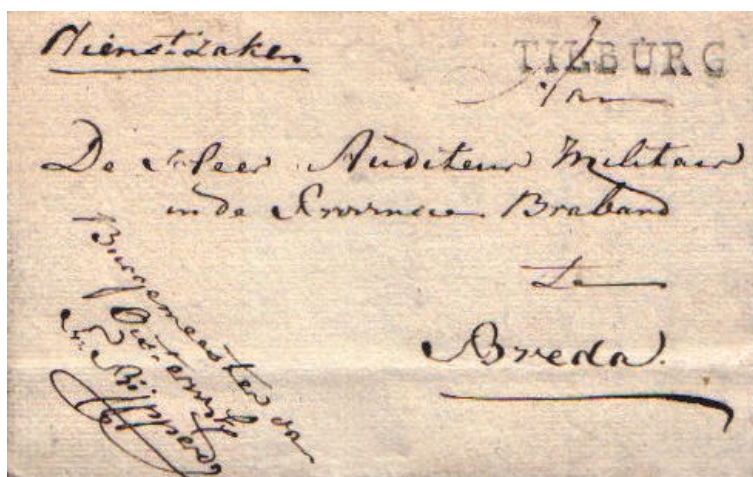 Dienstzaken
TILBURG
Aan
De Heer Auditeur Militair
in de Provincie Braband
te
Breda.
Burgemeester van
Oisterwijk